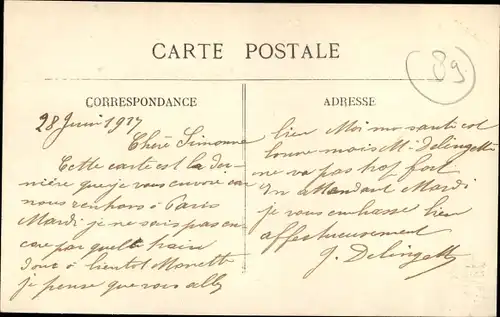 CARTE POSTALE
89
CORRESPONDANCE
28 Juin 1917
Chère Simonne
Cette carte est la der-
nière que je vous envoie car
nous rentrons à Paris
Mardi je ne sais pas en-
core par quelle train
donc à bientot Manette
je pense que vous allez
ADRESSE
bien Moi ma santé est
bonne mais M. Delingette
ne va pas trop fort
En attendant Mardi
je vous embrasse bien
affectueusement
J. Delingette